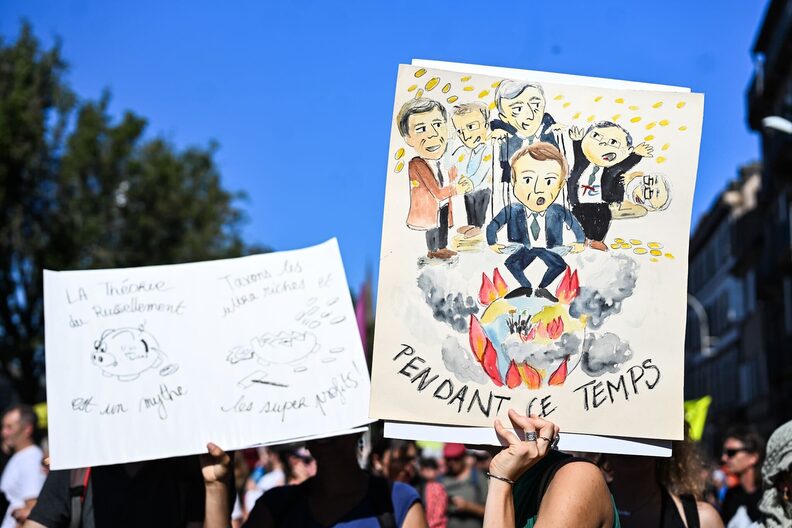 LA Théorie
du Ruissellement
est un mythe
Taxons les
ultra riches et
les super profits!
PENDANT CE TEMPS